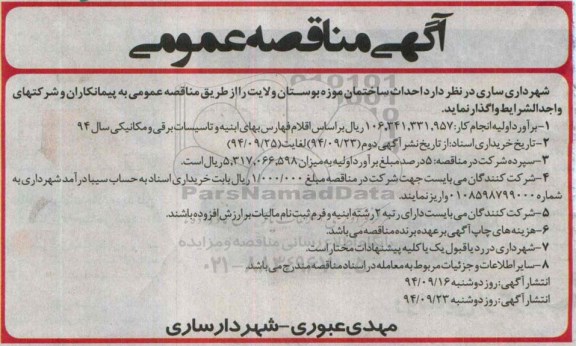 آگهی مناقصه عمومی
شهرداری ساری در نظر دارد احداث ساختمان موزه بوستان ولایت را از طریق مناقصه عمومی به پیمانکاران و شرکتهای
واجدالشرایط واگذار نماید.
۱- برآورد اولیه انجام کار: ۱۰۶,۳۴۱,۳۳۱,۹۵۷ ریال بر اساس اقلام فهارس بهای ابنیه و تاسیسات برقی و مکانیکی سال ۹۴
۲- تاریخ خریداری اسناد: از تاریخ نشر آگهی دوم (۹۴/۰۹/۲۳) لغایت (۹۴/۰۹/۲۵)
۳- سپرده شرکت در مناقصه: ۵ درصد مبلغ برآورد اولیه به میزان ۵,۳۱۷,۰۶۶,۵۹۸ ریال است.
۴- شرکت کنندگان می بایست جهت شرکت در مناقصه مبلغ ۱/۰۰۰/۰۰۰ ریال بابت خریداری اسناد به حساب سیبا درآمد شهرداری به
شماره ۰۱۰۸۵۹۸۷۹۹۰۰۰ واریز نمایند.
۵- شرکت کنندگان می بایست دارای رتبه ۲ رشته ابنیه و فرم ثبت نام مالیات بر ارزش افزوده باشند.
۶- هزینه های چاپ آگهی بر عهده برنده مناقصه می باشد.
۷- شهرداری در رد یا قبول یک یا کلیه پیشنهادات مختار است.
۸- سایر اطلاعات و جزئیات مربوط به معامله در اسناد مناقصه مندرج می باشد.
انتشار آگهی: روز دوشنبه ۹۴/۰۹/۱۶
انتشار آگهی: روز دوشنبه ۹۴/۰۹/۲۳
مهدی عبوری - شهردار ساری
ParsNamadData